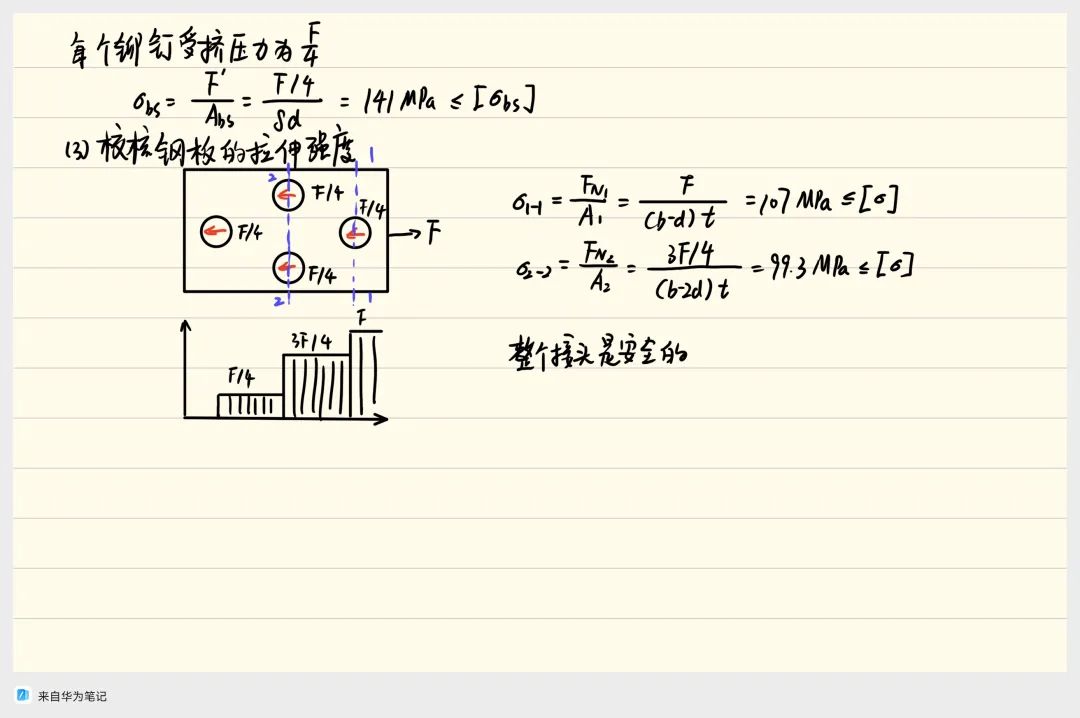 每个铆钉受挤压力为 F/4
σbs = F'/Abs = F/4/δd = 141 MPa ≤ [σbs]
(3) 校核钢板的拉伸强度
1
2
F/4
F/4
F/4
F
F/4
2
1
σ1-1 = FN1/A1 = F/(b-d)t = 107 MPa ≤ [σ]
σ2-2 = FN2/A2 = 3F/4/(b-2d)t = 99.3 MPa ≤ [σ]
F
3F/4
F/4
整个接头是安全的
来自华为笔记